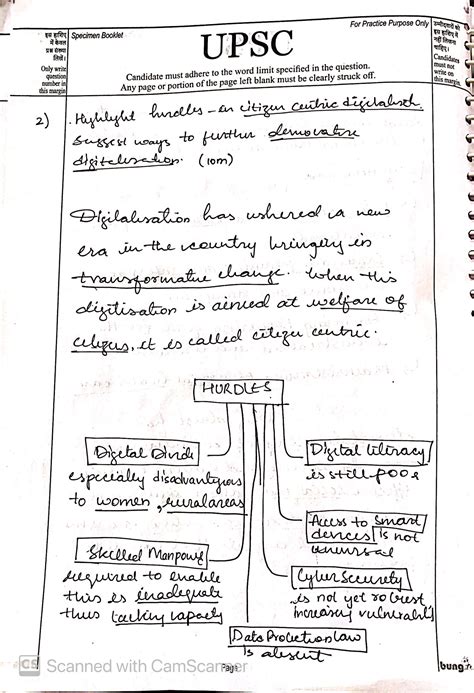 इस हाशिए
में केवल
प्रश्न संख्या
लिखें।
Only write
question
number in
this margin
Specimen Booklet
For Practice Purpose Only
UPSC
Candidate must adhere to the word limit specified in the question.
Any page or portion of the page left blank must be clearly struck off.
उम्मीदवारों को
इस हाशिए में
नहीं लिखना
चाहिए।
Candidates
must not
write on
this margin
2)
Highlight hurdles in citizen centric digitalisatn.
Suggest ways to further democratise
digitalisation. (10m)
Digitalisation has ushered in a new
era in the country bringing in
transformative change. When this
digitisation is aimed at welfare of
citizens, it is called citizen centric.
HURDLES
Digital Divide
especially disadvantageous
to women, rural areas
Skilled Manpower
required to enable
this is inadequate
thus lacking capacity
Digital literacy
is still poor
Access to smart
devices is not
universal
Cyber Security
is not yet robust
increasing vulnerabl
Data Protection law
is absent
CS Scanned with CamScanner
Page
bung